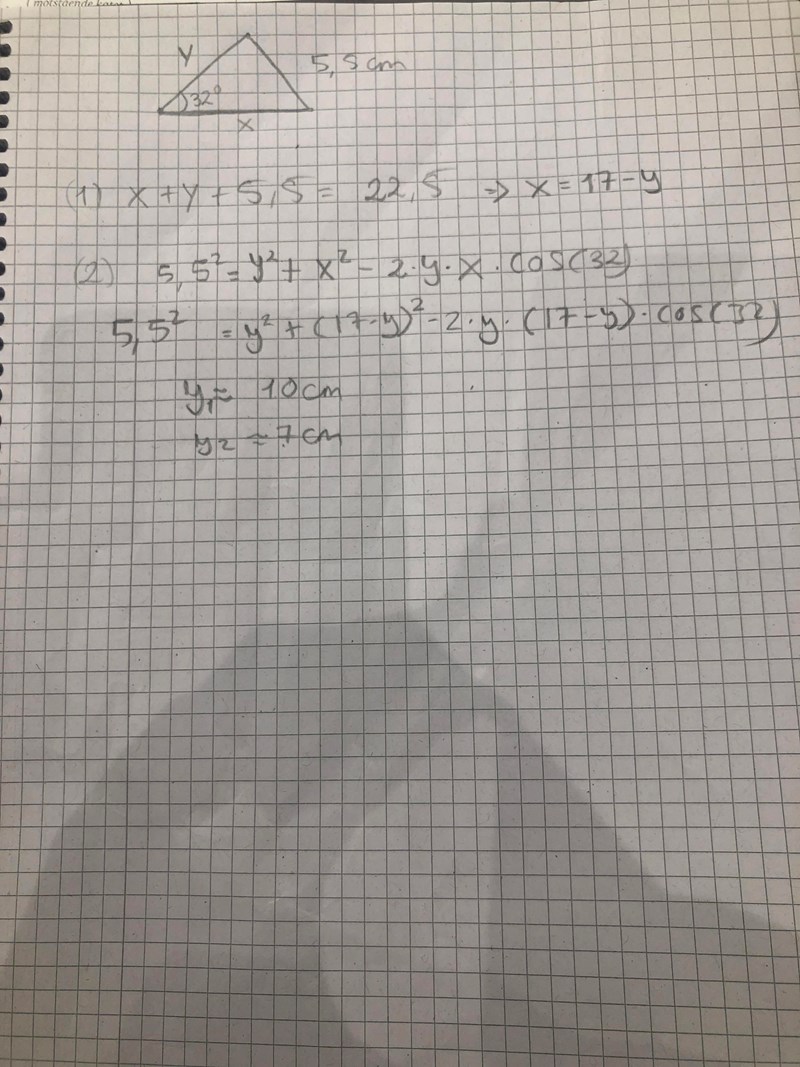 (motstående
y
5,5 cm
32°
x
(1) x + y + 5,5 = 22,5 ⇒ x = 17 - y
(2) 5,5² = y² + x² - 2·y·x·cos(32)
5,5² = y² + (17-y)² - 2·y·(17-y)·cos(32)
y₁ ≈ 10 cm
y₂ ≈ 7 cm